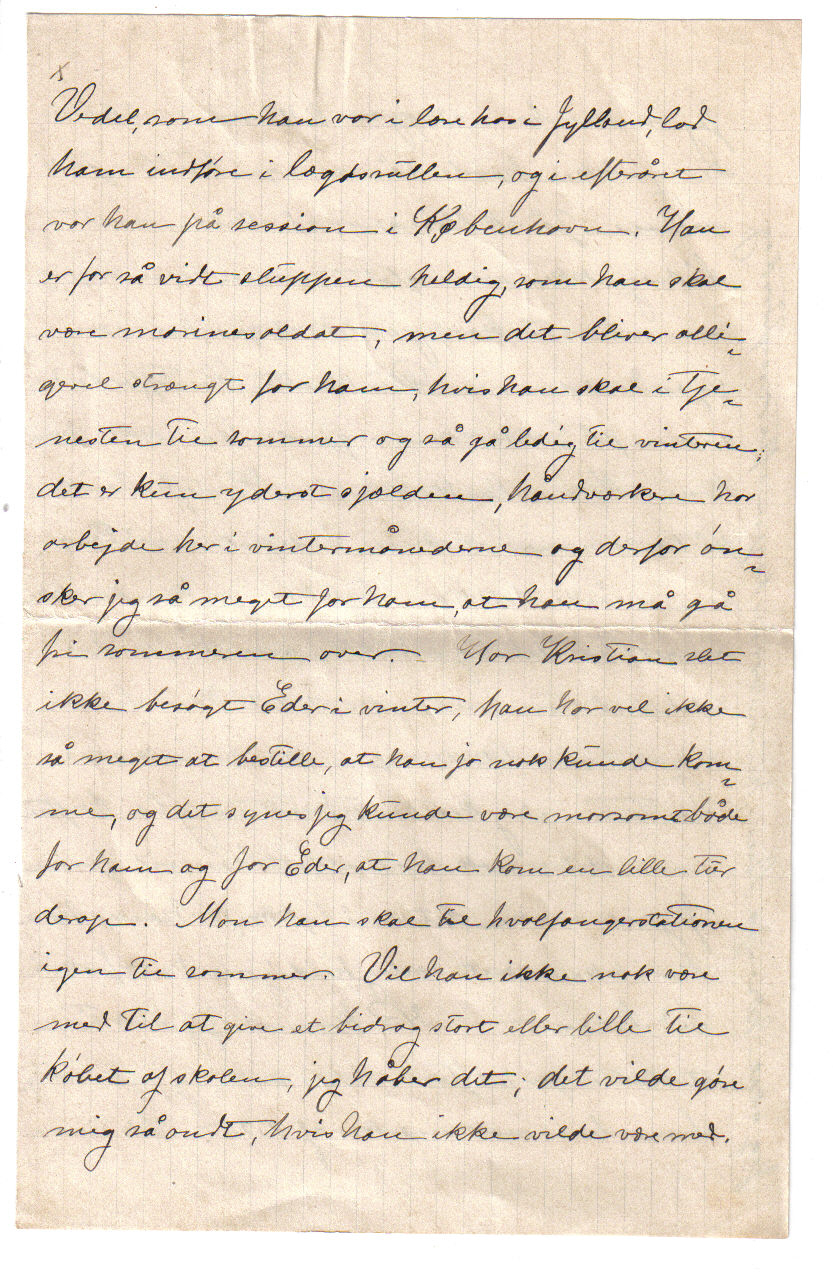 x
Vedel, som han var i lære hos i Jylland, lod
ham indføre i lægdsrullen, og i efteråret
var han på session i København. Han
er for så vidt sluppen heldig, som han skal
være marinesoldat, men det bliver alli-
gevel strængt for ham, hvis han skal i tje-
nesten til sommer og så gå ledig til vinteren;
det er kun yderst sjælden, håndværkere har
arbejde her i vintermånederne og derfor øn-
sker jeg så meget for ham, at han må gå
fri sommeren over. Har Kristian slet
ikke besøgt Eder i vinter, han har vel ikke
så meget at bestille, at han jo nok kunde kom-
me, og det synes jeg kunde være morsomt både
for ham og for Eder, at han kom en lille tur
derop. Mon han skal til hvalfangerstationen
igen til sommer. Vil han ikke nok være
med til at give et bidrag stort eller lille til
købet af skolen, jeg håber det; det vilde gøre
mig så ondt, hvis han ikke vilde være med.